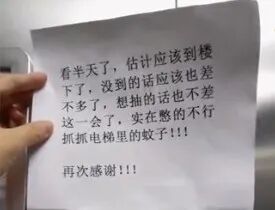 看半天了，估计应该到楼
下了，没到的话应该也差
不多了，想抽的话也不差
这一会了，实在憋的不行
抓抓电梯里的蚊子!!!
再次感谢!!!